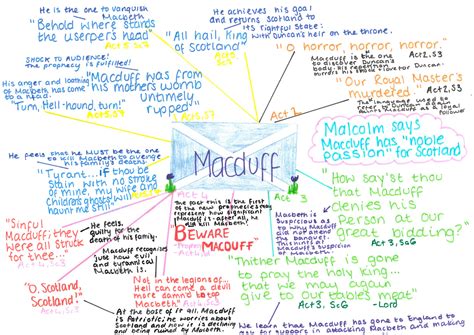 He is the one to vanquish
Macbeth
"Behold where stands
the userper's head"
Act 5
He achieves his goal
and returns Scotland to
its rightful state:
with Duncan's heir on the throne.
"All hail, King
of Scotland"
"O horror, horror, horror."
Act 2, S3
Macduff is the one
to discover Duncan's
body. His repetition
marks his shock + love for Duncan
"Our Royal Master's
murdered."
Act 2, S3
The language used
as a loyal
follower
SHOCK TO AUDIENCE:
the prophecy is fulfilled!
"Macduff was from
his mothers womb
Untimely
ripped"
Act 5, S7
His anger and loathing
of Macbeth has come
to a head.
"Turn, Hell-hound, turn!"
Act 5, S7
Macduff
Act 1
Act 3
Act 4
Malcolm says
Macduff has "noble
passion" for Scotland
He feels that HE MUST BE the one
to kill Macbeth to avenge
his family's death!
"Tyrant... if thou be
Slain with no stroke
of mine, my wife and
Childrens ghosts will
haunt me still"
"How say'st thou
that Macduff
denies his
Person at our
great bidding?"
Act 3, Sc4
Macbeth is
suspicious as
to why Macduff
did not appear
at the banquet.
This hints at
Macduff's
suspicion of Macbeth.
"Sinful
Macduff; they
were all struck
for thee..."
He feels
guilty for the
death of his family.
The fact this is the first
of the new prophecies
represent how significant
Macduff is - after all, he
does kill Macbeth.
"BEWARE
MACDUFF"
Macduff recognises
just how evil
and tyrannical
Macbeth is.
"Not in the legions of
Hell can come a devil
more damned
Macbeth"
"O, Scotland,
Scotland!"
At the best of it all, Macduff
is Patriotic; he worries about
Scotland and how it is declining
and being ruined by Macbeth.
"Thither Macduff is gone
to pray the holy king...
that we may again
give to our tables meat"
-Lord
We learn that Macduff has gone to England to